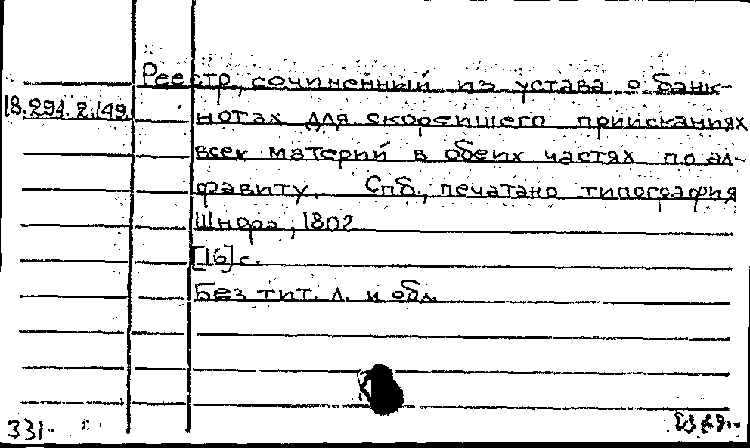 Реестр, сочиненный из устава о банк-
18.291.2.149 нотах для скорейшего приискания
всех материй в обеих частях по ал-
фавиту. Спб., печатано типография
Шнора, 1802
[16] с.
Без тит. л. и обл.
331-